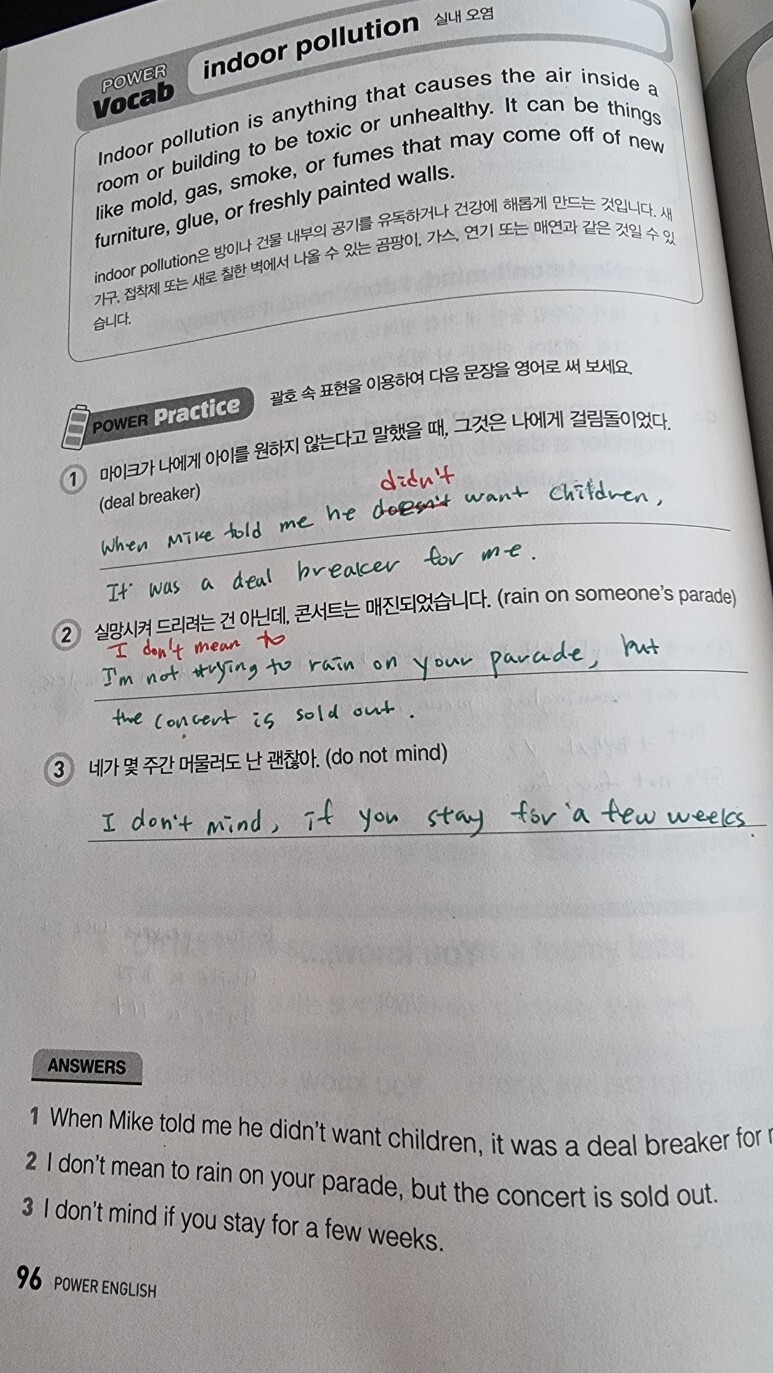 POWER
Vocab
indoor pollution 실내 오염
Indoor pollution is anything that causes the air inside a
room or building to be toxic or unhealthy. It can be things
like mold, gas, smoke, or fumes that may come off of new
furniture, glue, or freshly painted walls.
indoor pollution은 방이나 건물 내부의 공기를 유독하거나 건강에 해롭게 만드는 것입니다. 새
가구, 접착제 또는 새로 칠한 벽에서 나올 수 있는 곰팡이, 가스, 연기 또는 매연과 같은 것일 수 있
습니다.
POWER Practice 괄호 속 표현을 이용하여 다음 문장을 영어로 써 보세요.
1 마이크가 나에게 아이를 원하지 않는다고 말했을 때, 그것은 나에게 걸림돌이었다.
(deal breaker)
didn't
When Mike told me he doesn't want children,
It was a deal breaker for me.
2 실망시켜 드리려는 건 아닌데, 콘서트는 매진되었습니다. (rain on someone's parade)
I don't mean to
I'm not trying to rain on your parade, but
the concert is sold out.
3 네가 몇 주간 머물러도 난 괜찮아. (do not mind)
I don't mind, if you stay for a few weeks.
ANSWERS
1 When Mike told me he didn't want children, it was a deal breaker for
2 I don't mean to rain on your parade, but the concert is sold out.
3 I don't mind if you stay for a few weeks.
96 POWER ENGLISH